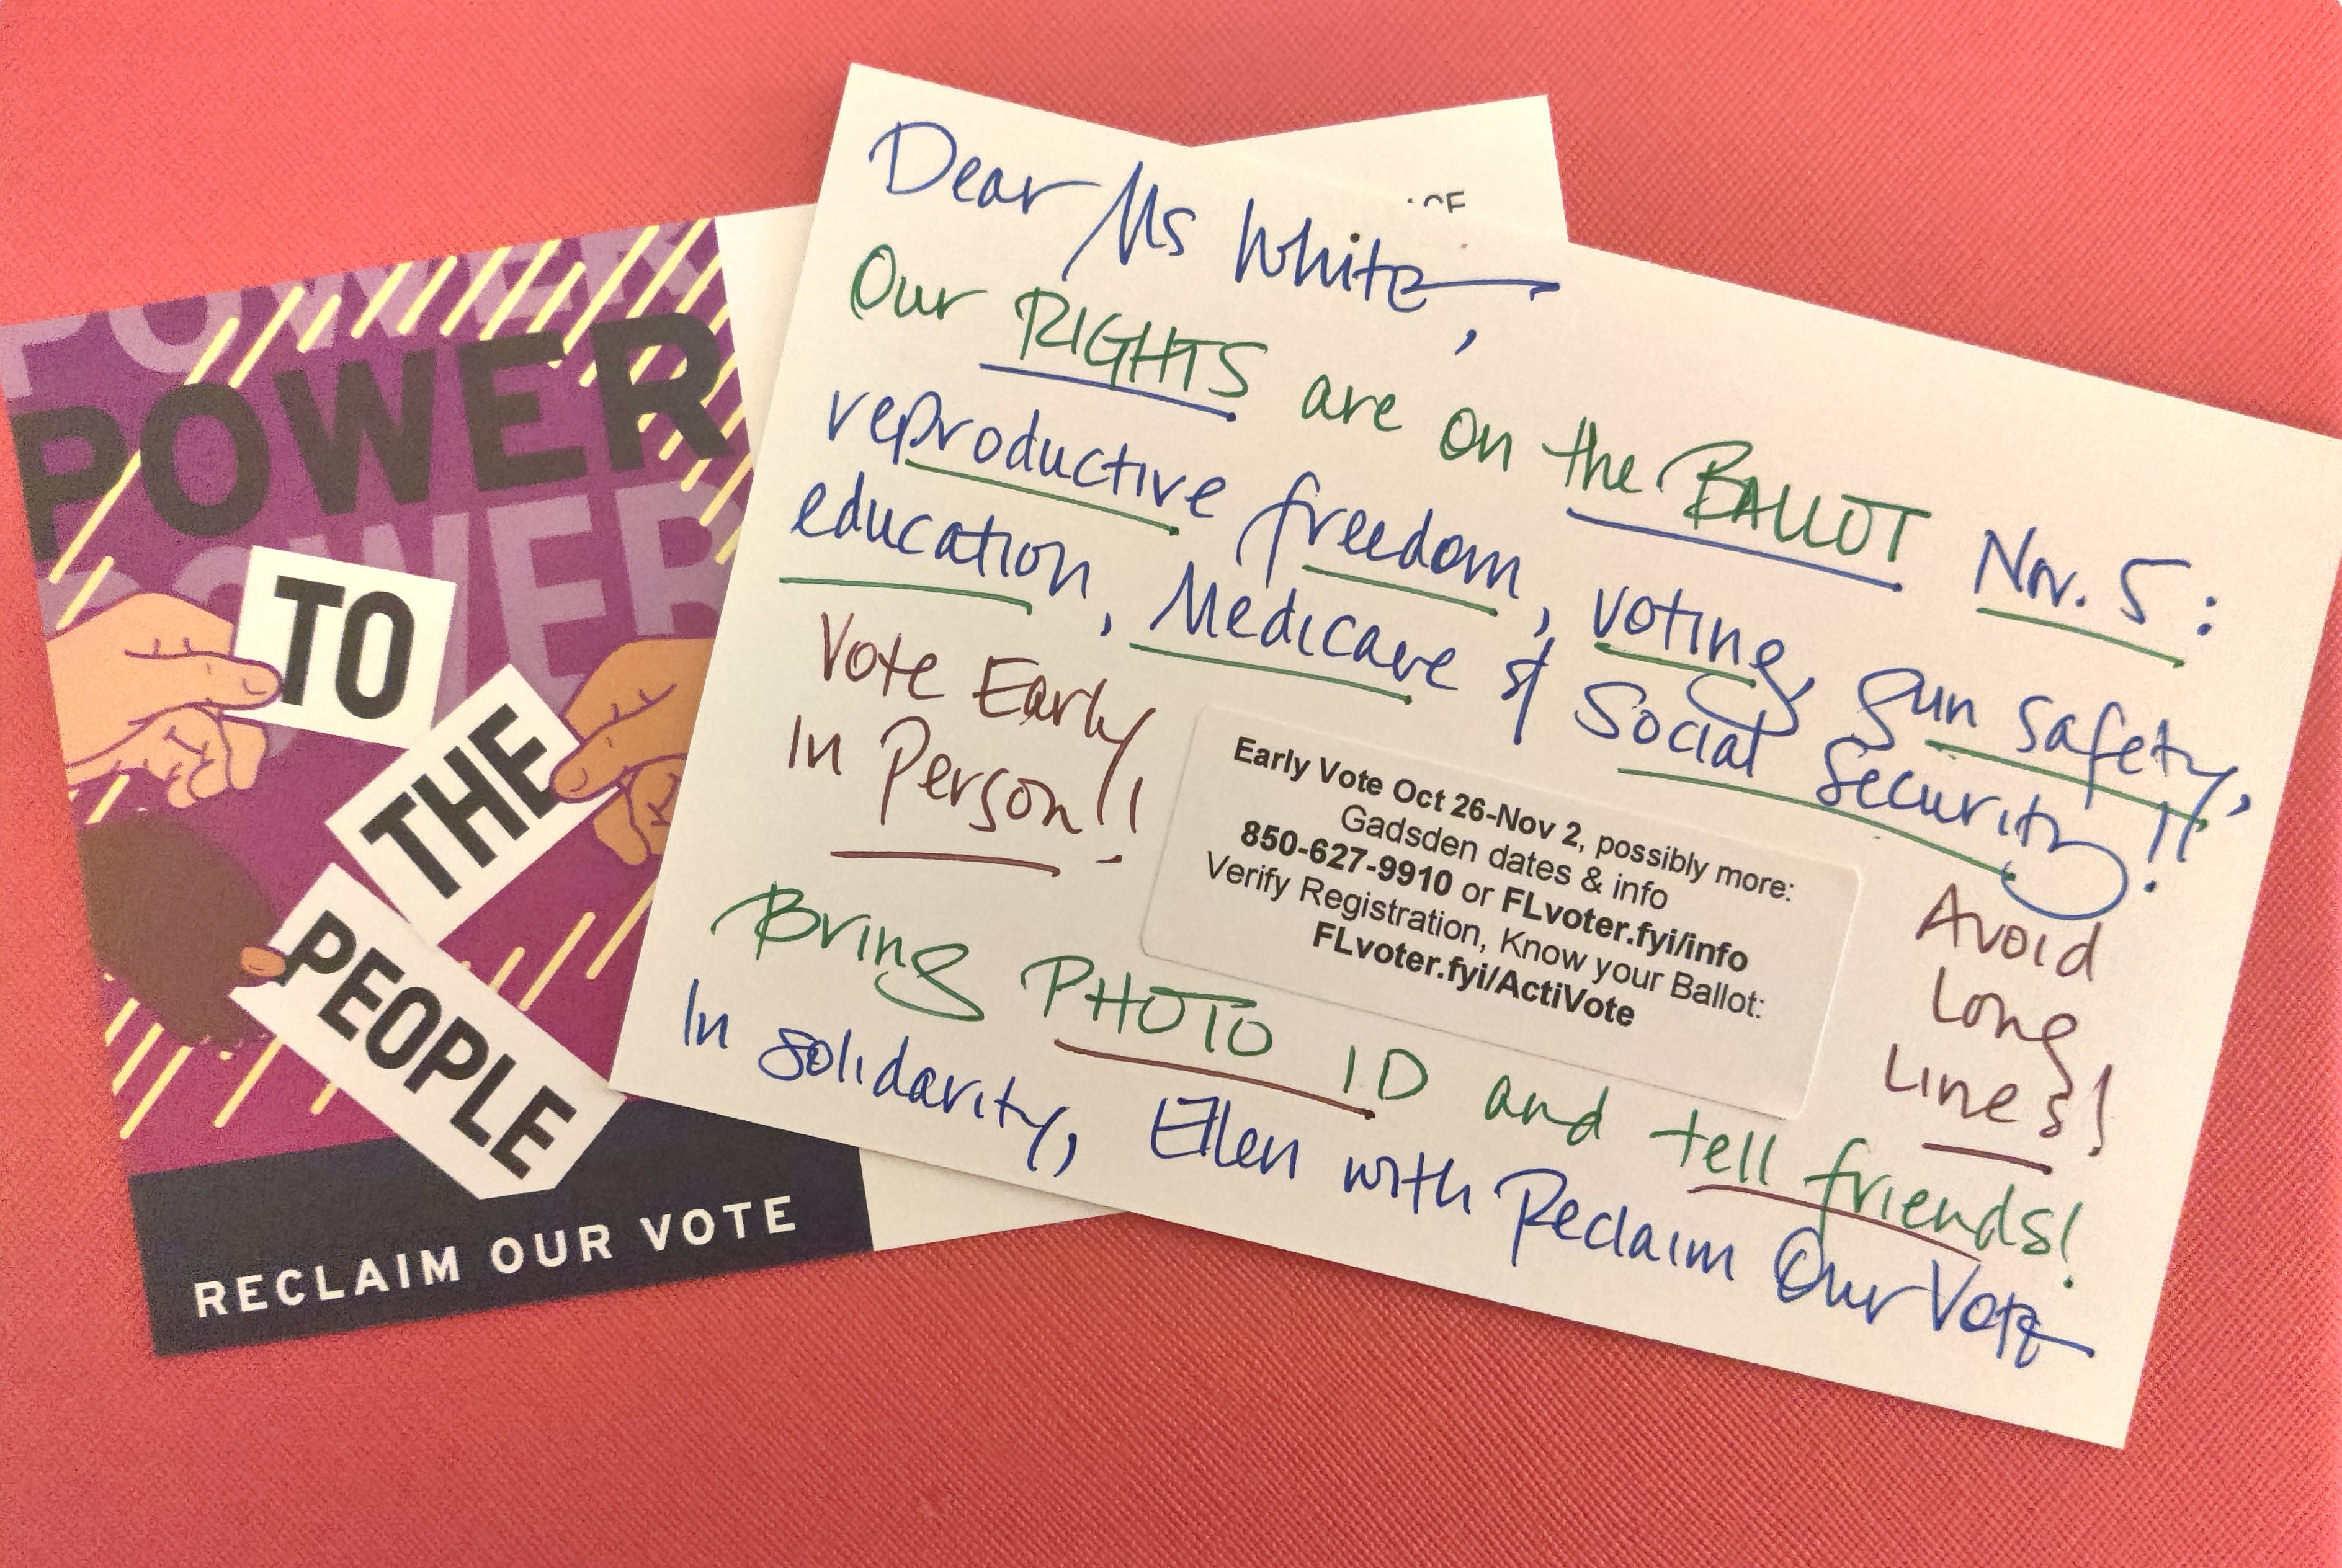 POWER
POWER
POWER
POWER
TO
THE
PEOPLE
RECLAIM OUR VOTE
Dear Ms White,
Our RIGHTS are on the BALLOT Nov. 5:
reproductive freedom, voting, gun safety,
education, Medicare & Social Security!!
Vote Early
In Person!!
Early Vote Oct 26-Nov 2, possibly more:
Gadsden dates & info
850-627-9910 or FLvoter.fyi/info
Verify Registration, Know your Ballot:
FLvoter.fyi/ActiVote
Avoid
Long
Lines!
Bring PHOTO ID and tell friends!
In solidarity, Ellen with Reclaim Our Vote